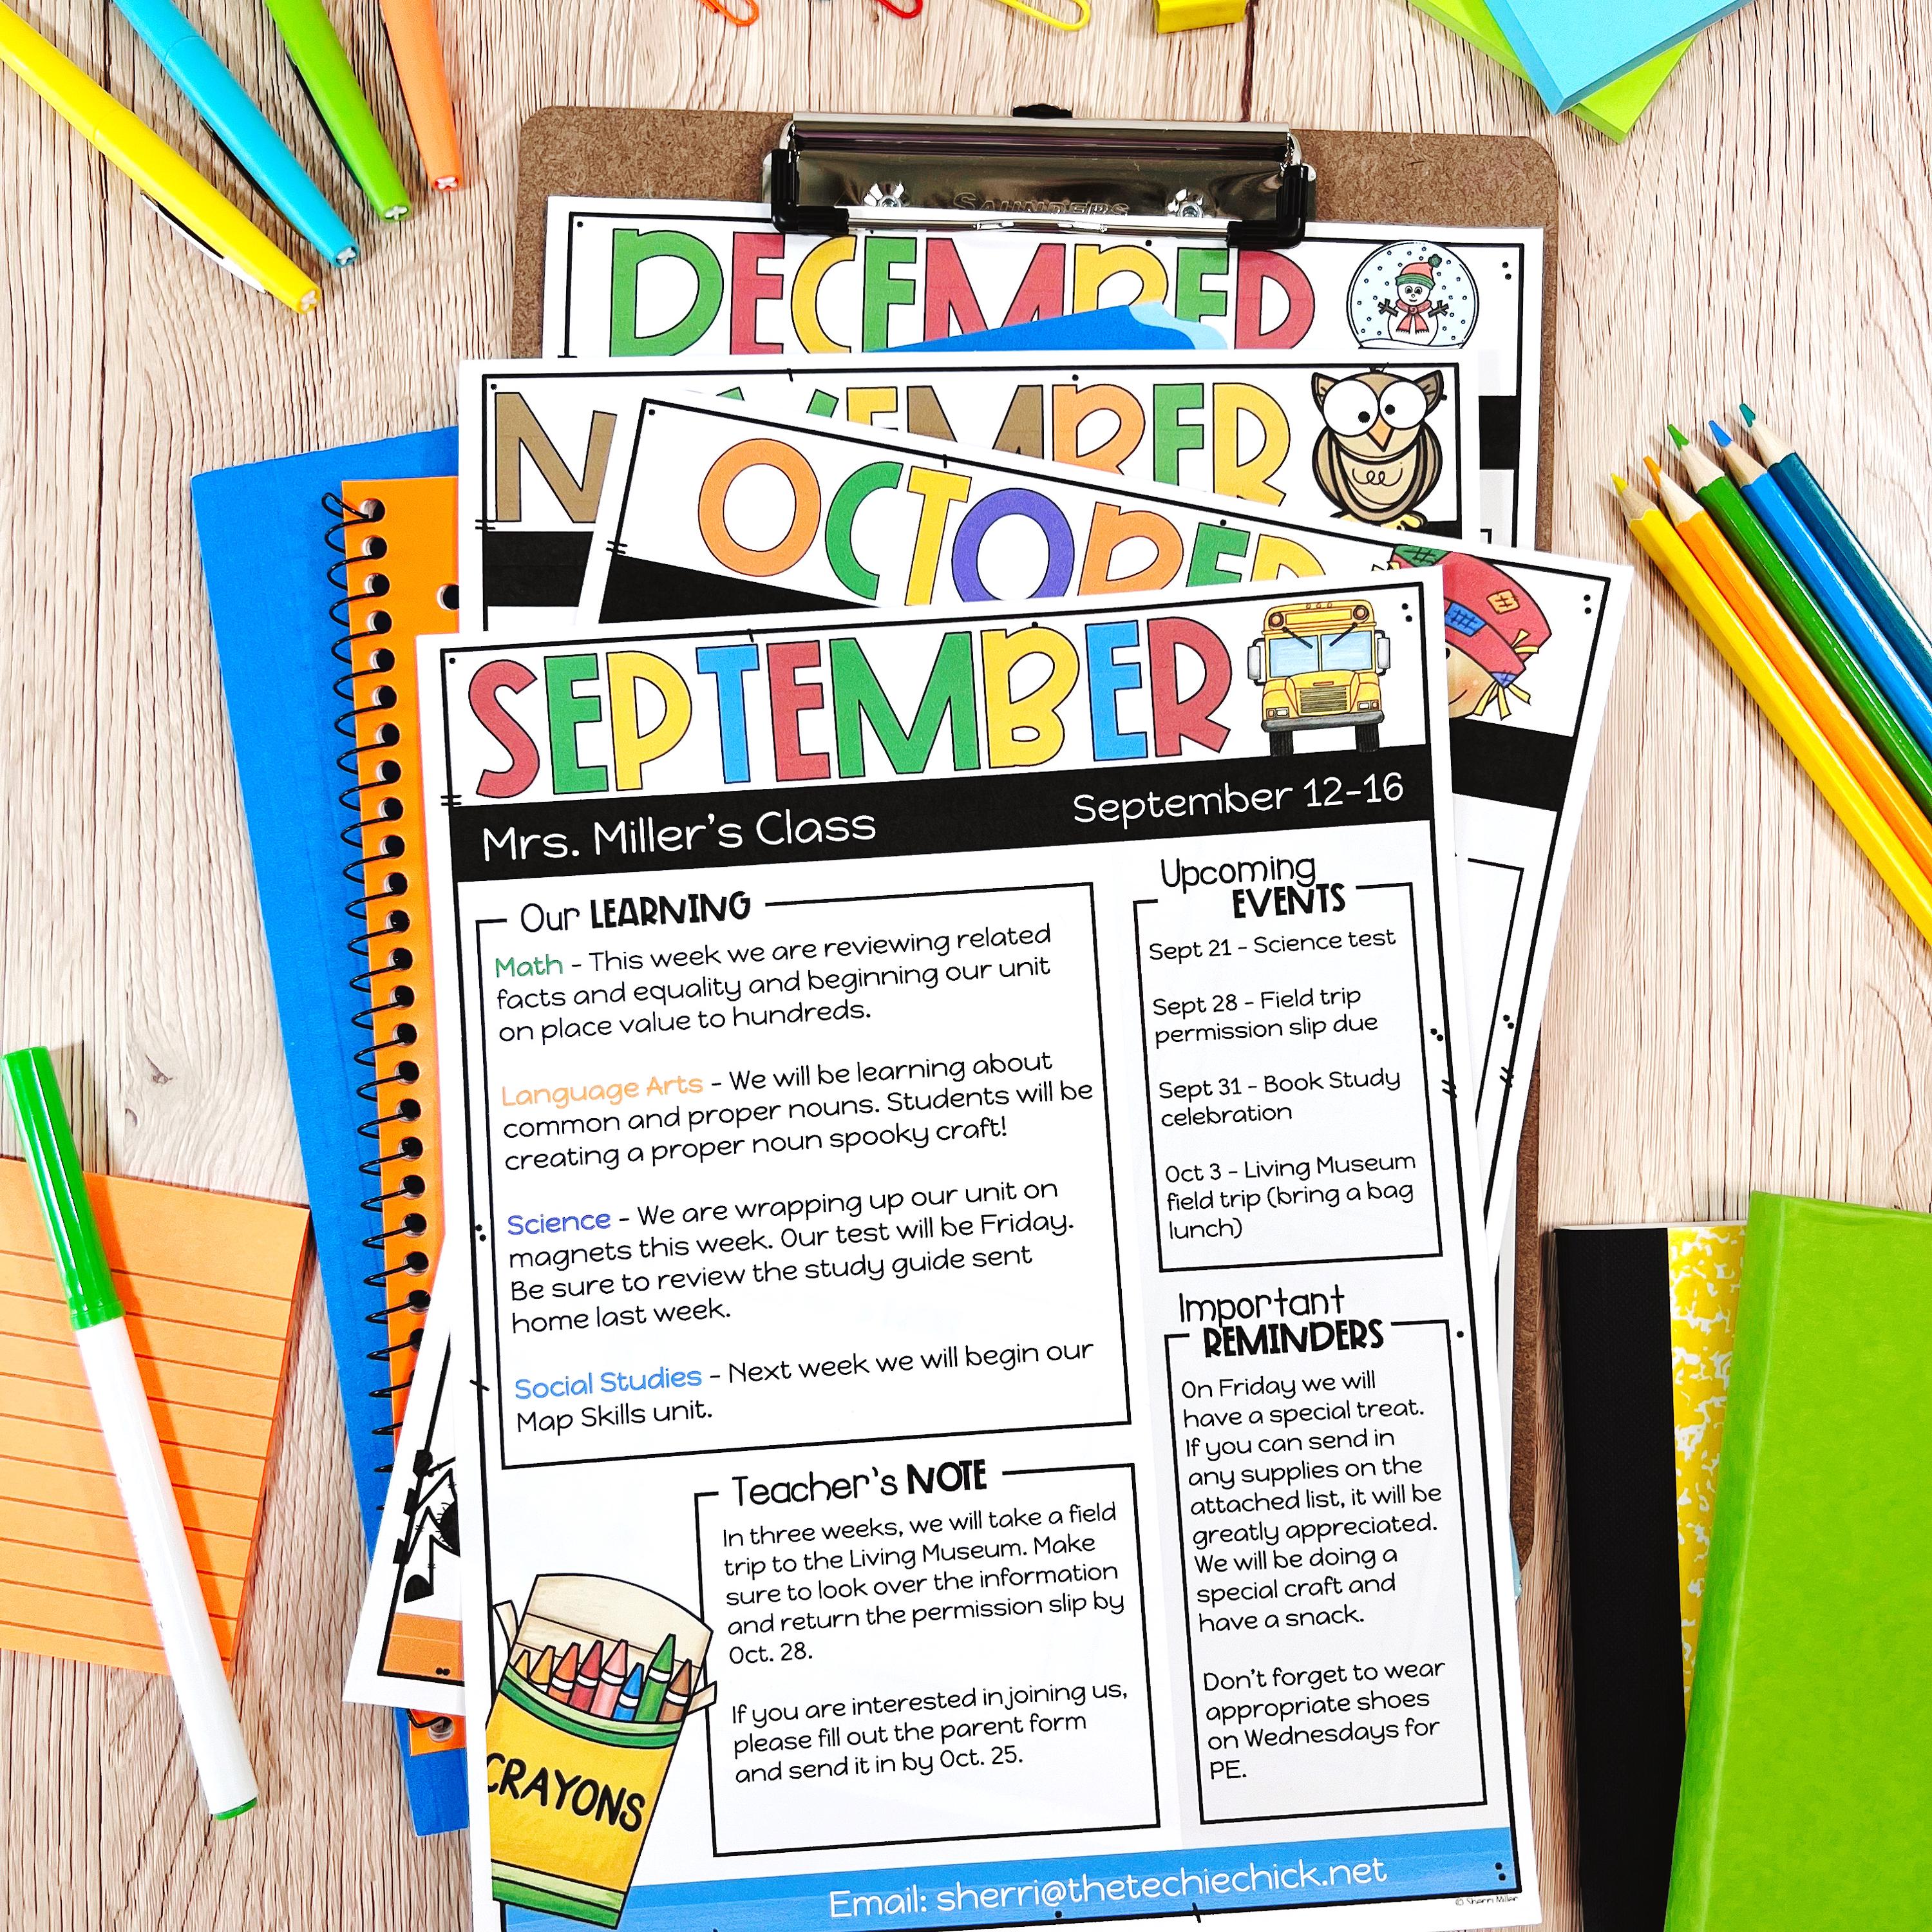 SAUNDERS
DECEMBER
NOVEMBER
OCTOBER
SEPTEMBER
Mrs. Miller's Class
September 12-16
Our LEARNING
Math - This week we are reviewing related
facts and equality and beginning our unit
on place value to hundreds.
Language Arts - We will be learning about
common and proper nouns. Students will be
creating a proper noun spooky craft!
Science - We are wrapping up our unit on
magnets this week. Our test will be Friday.
Be sure to review the study guide sent
home last week.
Social Studies - Next week we will begin our
Map Skills unit.
Upcoming
EVENTS
Sept 21 - Science test
Sept 28 - Field trip
permission slip due
Sept 31 - Book Study
celebration
Oct 3 - Living Museum
field trip (bring a bag
lunch)
Important
REMINDERS
On Friday we will
have a special treat.
If you can send in
any supplies on the
attached list, it will be
greatly appreciated.
We will be doing a
special craft and
have a snack.
Don't forget to wear
appropriate shoes
on Wednesdays for
PE.
Teacher's NOTE
In three weeks, we will take a field
trip to the Living Museum. Make
sure to look over the information
and return the permission slip by
Oct. 28.
If you are interested in joining us,
please fill out the parent form
and send it in by Oct. 25.
CRAYONS
Email: sherri@thetechiechick.net
© Sherri Miller